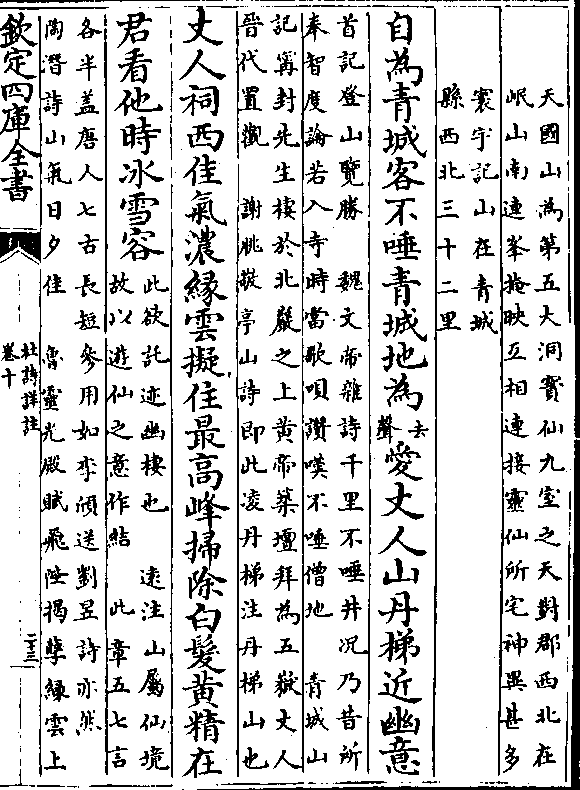 天國山為第五大洞寳仙九室之天對郡西北在
岷山南連峯掩映互相連接靈仙所宅神異甚多
寰宇記山在青城
縣西北三十二里
自為青城客不唾青城地為去聲愛丈人山丹梯近幽意
首記登山覽勝 魏文帝雜詩千里不唾井况乃昔所
奉智度論若入寺時當歌唄讚嘆不唾僧地 青城山
記甯封先生棲於北巖之上黄帝築壇拜為五嶽丈人
晉代置觀 謝朓敬亭山詩即此凌丹梯注丹梯山也
丈人祠西佳氣濃緣雲擬住最高峰掃除白髮黄精在
君看他時冰雪容
此欲託迹幽棲也 逺注山屬仙境
故以遊仙之意作結 此章五七言
各半盖唐人七古長短參用如李頎送劉昱詩亦然
陶潛詩山氣日夕佳 魯靈光殿賦飛陛揭孽緣雲上
欽定四庫全書
杜詩詳註
卷十
二十三